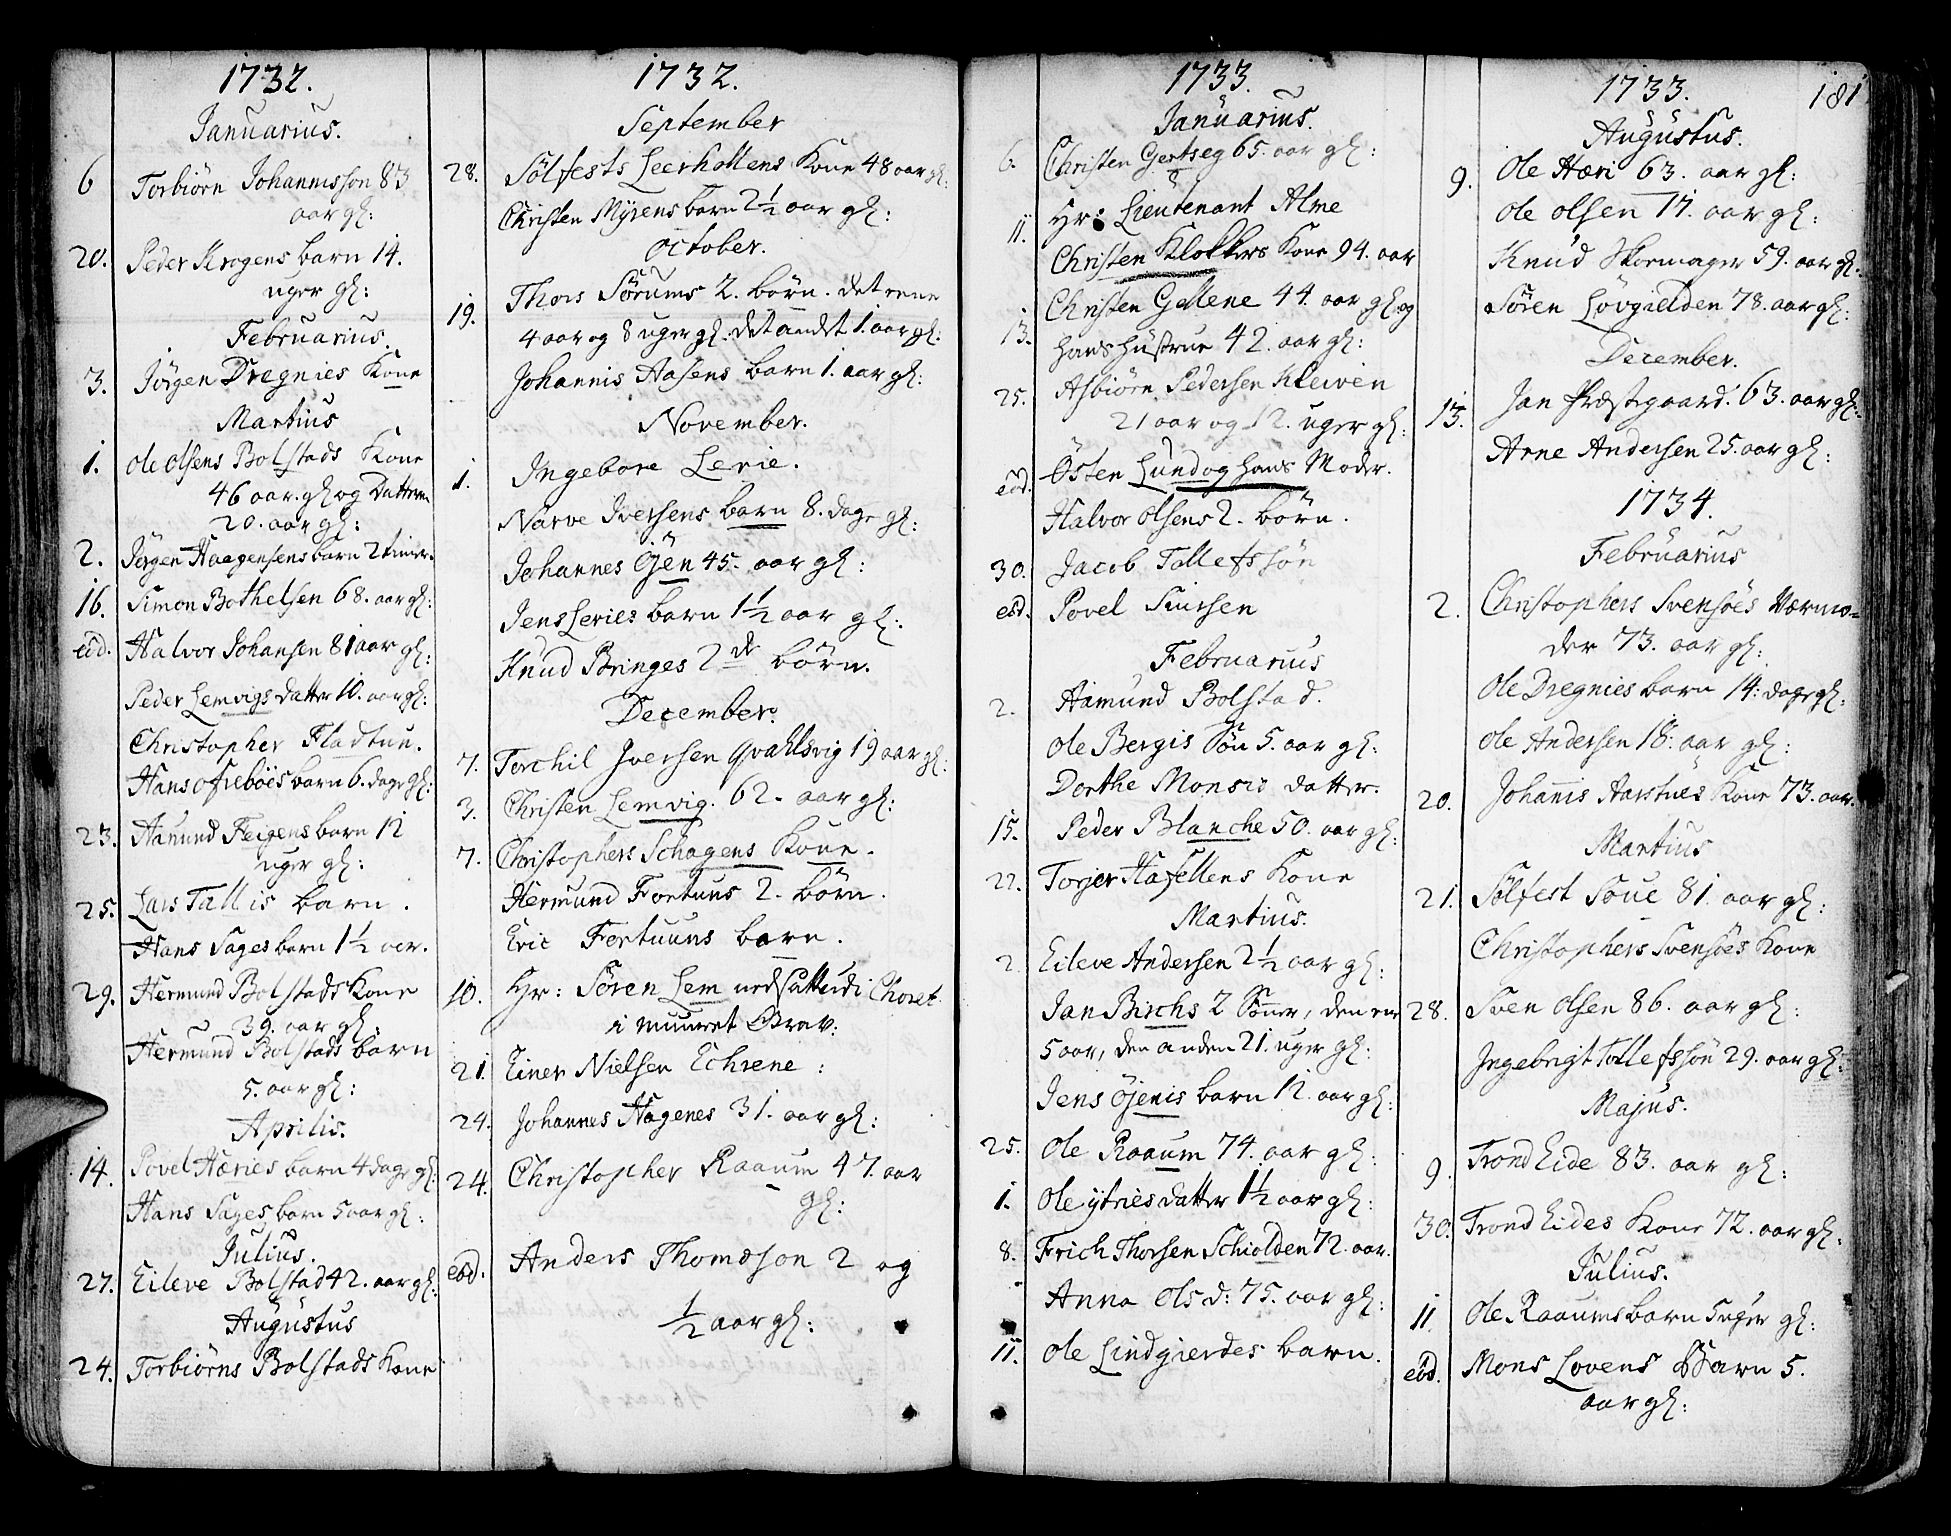 1732.
Januarius.
6 Torbiörn Johannisson 83
aar gl:
20. Peder Krogens barn 14.
uger gl:
Februarius.
3. Jörgen Dregnies Kone
Martius
1. Ole Olsens Bolstads Kone
46 aar. gl og Datteren
20. aar gl:
2. Jörgen Haagensens barn 2 timer.
16. Simon Bothelsen 68. aar gl:
eod. Halvor Johansen 81 aar gl:
Peder Lemvigs datter 10. aar gl:
Christopher Fladtun.
Hans Ofreböes barn 6. dage gl:
23. Hamund Feigens barn 12
uger gl:
25. Lars Tallis barn.
Hans Sages barn 1½ aar.
29. Hermund Bolstads Kone
39. aar gl.
Hermund Bolstads barn
5. aar gl:
Aprilis.
14. Povel Hæries barn 4 dage gl:
Hans Sages barn 5 aar gl:
Julius.
27. Eileve Bolstad 42. aar gl:
Augustus
24. Torbiörns Bolstads Kone
1732.
September
28. Sölfests Leerhollens Kone 48 aar gl:
Christen Myrens barn 2½ aar gl:
October.
19. Thors Sörums 2. börn. det eene
4 aar og 8 uger gl: det andet 1. aar gl:
Johannis Aasens barn 1. aar gl:
November.
1. Ingebore Lerie.
Narve Iversens barn 8. dage gl:
Johannes Öjen 45. aar gl:
Jens Leries barn 1½ aar gl:
Knud Bringes 2de börn.
December.
7. Torchil Iversen Qvahlsvig 19 aar gl:
3. Christen Lemvig. 62. aar gl:
7. Christophers Schagens Kone.
Hermund Fortuns 2. börn.
Eric Fortuuns barn.
10. Hr: Sören Lem nedsatt udi Choret
i muuret Grav:
21. Einer Nielsen Echrene:
24. Johannes Hagenes 31. aar gl:
24. Christopher Raaum 47. aar
gl:
eod. Anders Thomsson 2 og
½ aar gl:
1733.
Januarius.
6. Christen Gertseg 65. aar gl:
11. Hr: Lieutenant Alme
Christen Klokkers Kone 94. aar
13. Christen Gellene 44. aar gl og
hans hustrue 42. aar gl:
25. Asbiörn Pedersen Kleiven
21 aar og 12. uger gl:
eod. Östen Lund og hans Moder.
Halvor Olsens 2. börn.
30. Jacob Tollefssön
eod. Povel Siursen
Februarius
2. Aamund Bolstad.
Ole Bergis Sön 5. aar gl:
Dorthe Monsis datter.
15. Peder Blanche 50. aar gl:
22. Torjer Hafellens Kone
Martius.
2 Eileve Andersen 2½ aar gl:
Jan Birchs 2 Sönner, den ene
5 aar, den anden 21. uger gl:
Jens Öjenis barn 12. aar gl:
25. Ole Raaum 74. aar gl:
1. Ole ytries datter 1½ aar gl:
8. Erich Thorsen Schiolden 72. aar.
Anna Ols d: 75. aar gl:
11. Ole Lindgierdes barn.
1733.
181
Augustus.
9. Ole Hæri 63. aar gl:
Ole Olsen 17. aar gl:
Knud Skomager 59. aar gl:
Sören Lövgielden 78. aar gl:
December.
13. Jan Præstegaard. 63. aar gl:
Arne Andersen 25. aar gl:
1734.
Februarius
2. Christophers Svensöes Værmo=
der 73. aar gl:
Ole Dregnies barn 14: dage gl:
Ole Andersen 18: aar gl:
20. Johanis Aarstues Kone 73. aar.
Martius
21. Sölfest Soue 81. aar gl:
Christophers Svensöes Kone
28. Sven Olsen 86. aar gl:
Ingebrigt Tollefssön 29. aar gl:
Majus.
9. Trond Eide 83. aar gl:
30. Trond Eides Kone 72. aar gl:
Julius.
11. Ole Raaums barn 5 uger gl:
eod. Mons Lovens Barn 5.
aar gl: